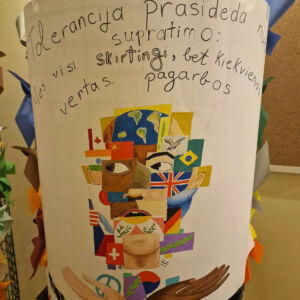 Tolerancija prasideda nuo
supratimo:
Mes visi skirtingi, bet kiekvienas
vertas pagarbos